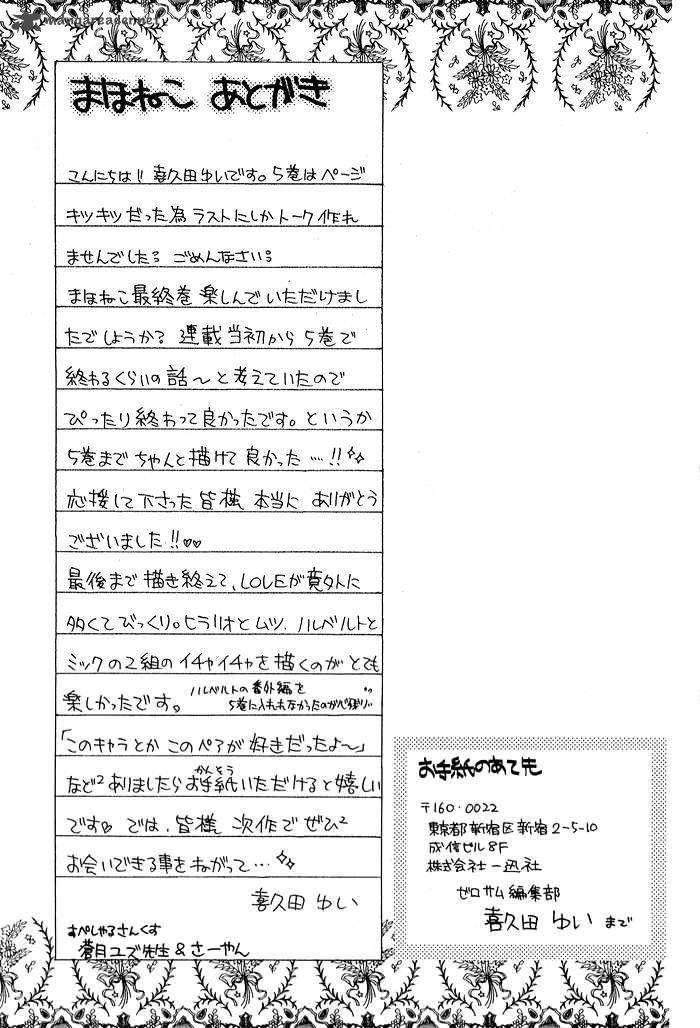 mangareader.net
まほねこ あとがき
こんにちは!! 喜久田ゆいです。5巻はページ
キツキツだった為 ラストにしかトーク作れ
ませんでした ごめんなさい
まほねこ最終巻 楽しんでいただけまし
たでしょうか? 連載当初から 5巻で
終わるくらいの話〜と考えていたので
ぴったり終わって良かったです。というか
5巻までちゃんと描けて良かった…!!
応援して下さった皆様 本当に ありがとう
ございました!!♡♡
最後まで描き終えて、LOVEが意外に
多くてびっくり。ヒラリオとムツ、ハルベルトと
ミックの2組のイチャイチャを描くのがとても
楽しかったです。
ハルベルトの番外編を
5巻に入れれなかったのが心残り
「このキャラとか このペアが好きだったよ〜」
など²ありましたらお手紙いただけると嬉しい
かんそう
です♡ では、皆様 次作でぜひ²
お会いできる事をねがって…
喜久田 ゆい
すぺしゃるさんくす
蒼月ユズ先生&さーやん
お手紙のあて先
〒160-0022
東京都新宿区新宿2-5-10
成信ビル8F
株式会社一迅社
ゼロサム編集部
喜久田 ゆい まで